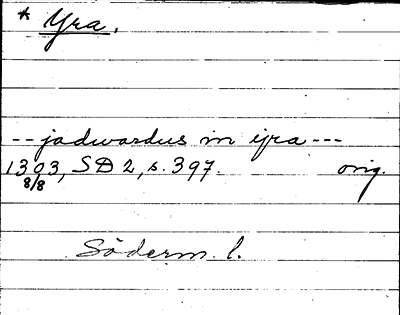 * Yra.
-- jadwardus in ijra ---
1303, SD 2, s. 397. orig.
8/8
Söderm. l.